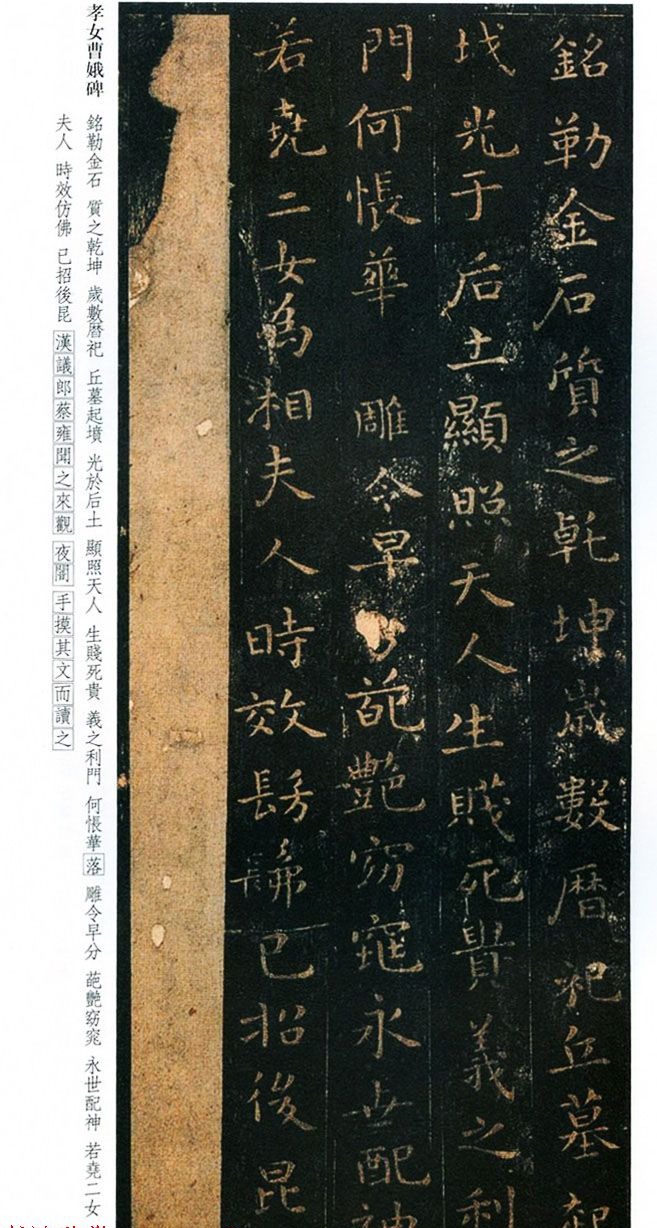 銘勒金石質之乹坤歳數暦祀丘墓起
坟光于后土顯照天人生賤死貴義之利
門何悵華 雕令早分葩艷窈窕永世配神
若堯二女為相夫人時效髣髴已招後昆
孝女曹娥碑
銘勒金石 質之乾坤 歲數曆祀 丘墓起墳 光於后土 顯照天人 生賤死貴 義之利門 何悵華落 雕令早分 葩艷窈窕 永世配神 若堯二女
夫人 時效仿佛 已招後昆 漢議郎蔡雍聞之來觀 夜闇 手摸其文而讀之